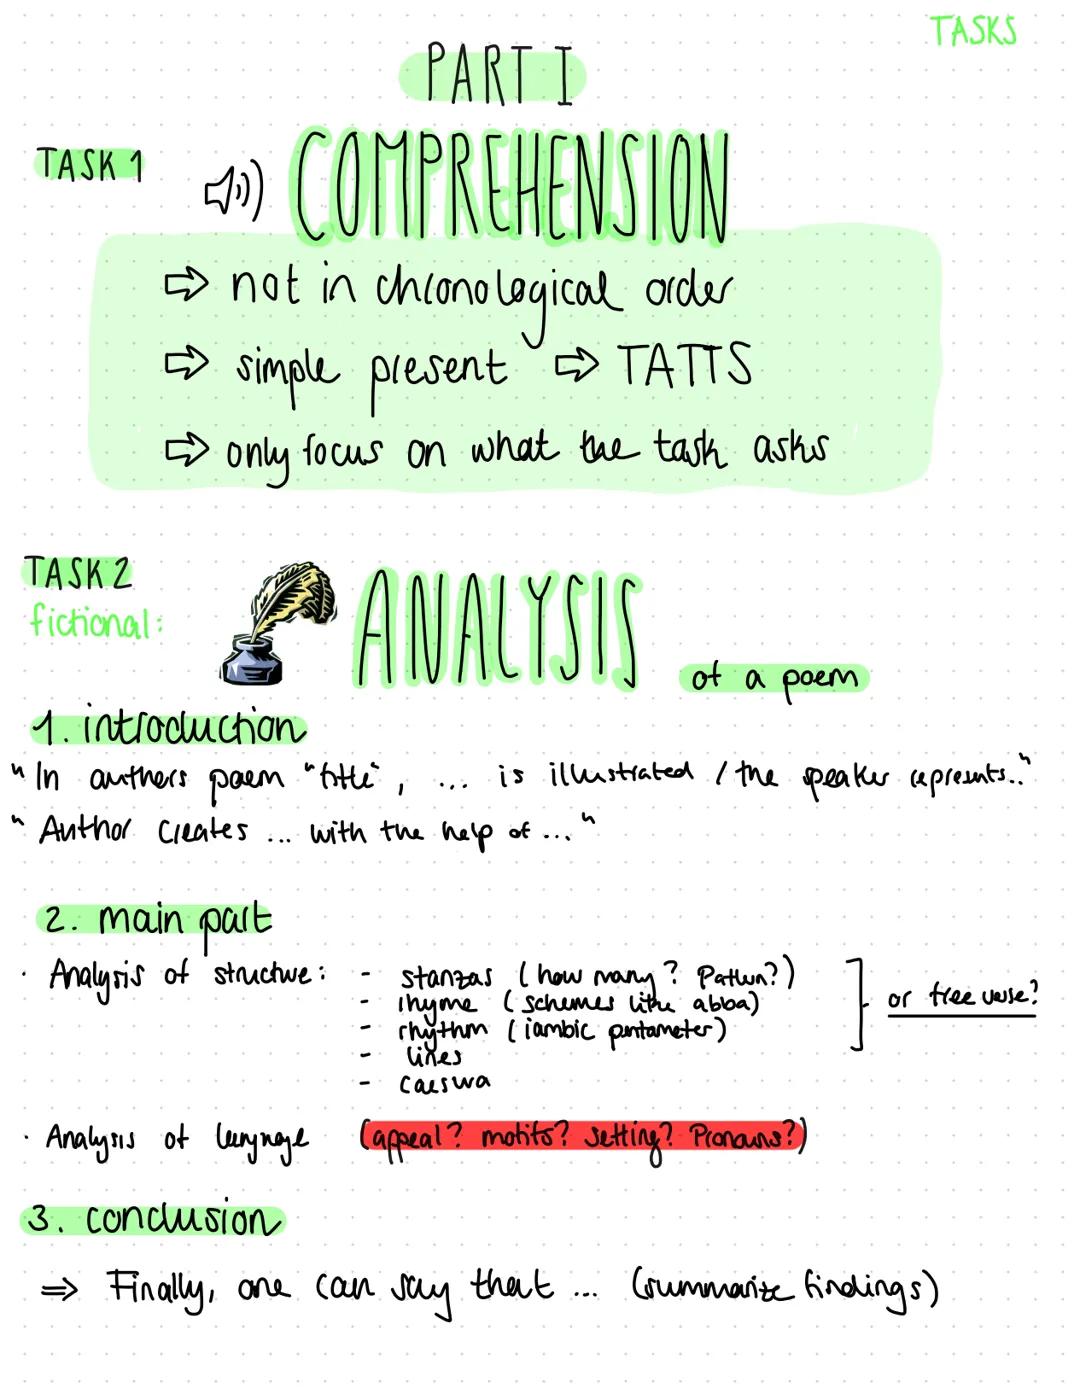 TASKS
PART I
TASK 1
COMPREHENSION
⇨ not in chronological order
⇨ simple present ⇨ TATTS
⇨ only focus on what the task asks
TASK 2
fictional:
ANALYSIS of a poem
1. introduction
"In authers poem "title", ... is illustrated / the speaker represents.."
"Author creates ... with the help of ..."
2. main part
· Analysis of structure: - stanzas (how many? Pattern?)
- rhyme (schemes like abba)
- rhythm (iambic pentameter)
or free verse?
- lines
- caesura
· Analysis of language (appeal? motifs? setting? Pronouns?)
3. conclusion
⇒ Finally, one can say that ... (summarize findings)